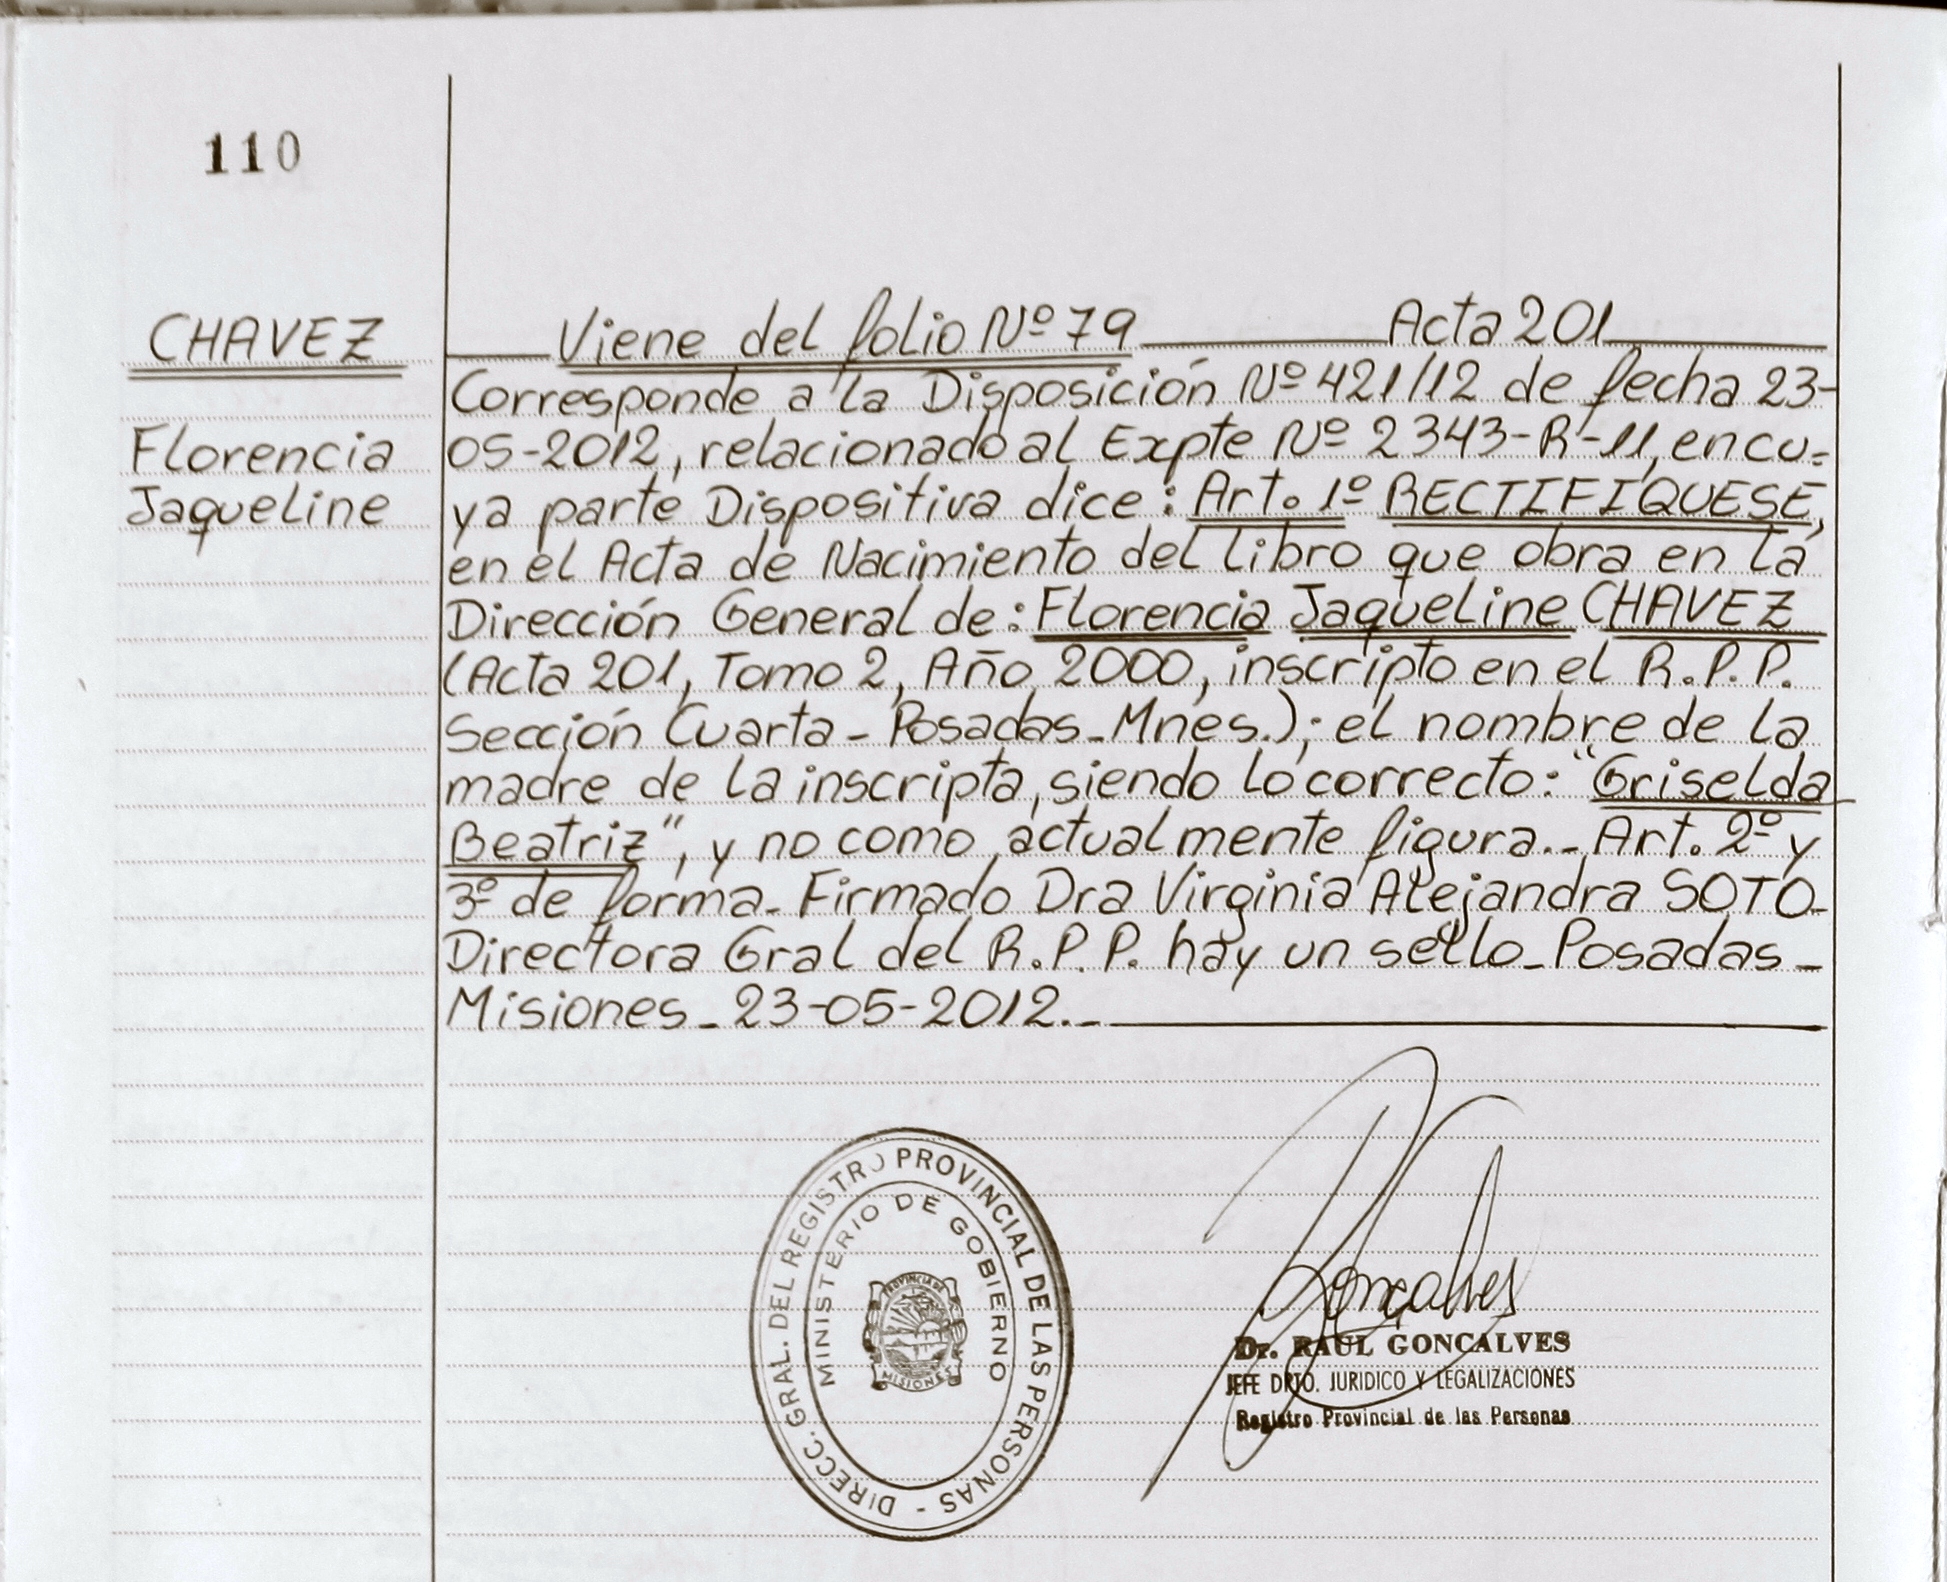 110
CHAVEZ
Florencia
Jaqueline
Viene del folio Nº 79 Acta 201
Corresponde a la Disposición Nº 421/12 de fecha 23-
05-2012, relacionado al Expte Nº 2343-R-11, en cu=
ya parte Dispositiva dice: Art. 1º RECTIFIQUESE,
en el Acta de Nacimiento del libro que obra en la
Dirección General de: Florencia Jaqueline CHAVEZ
(Acta 201, Tomo 2, Año 2000, inscripto en el R.P.P.
Sección Cuarta - Posadas - Mnes.); el nombre de la
madre de la inscripta, siendo lo correcto: "Griselda
Beatriz", y no como actualmente figura.- Art. 2º y
3º de forma - Firmado Dra Virginia Alejandra SOTO -
Directora Gral del R.P.P. hay un sello - Posadas -
Misiones - 23-05-2012.-
DIRECC. GRAL. DEL REGISTRO PROVINCIAL DE LAS PERSONAS -
MINISTERIO DE GOBIERNO
PROVINCIA DE
MISIONES
Goncalves
Dr. RAUL GONCALVES
JEFE DPTO. JURIDICO Y LEGALIZACIONES
Registro Provincial de las Personas